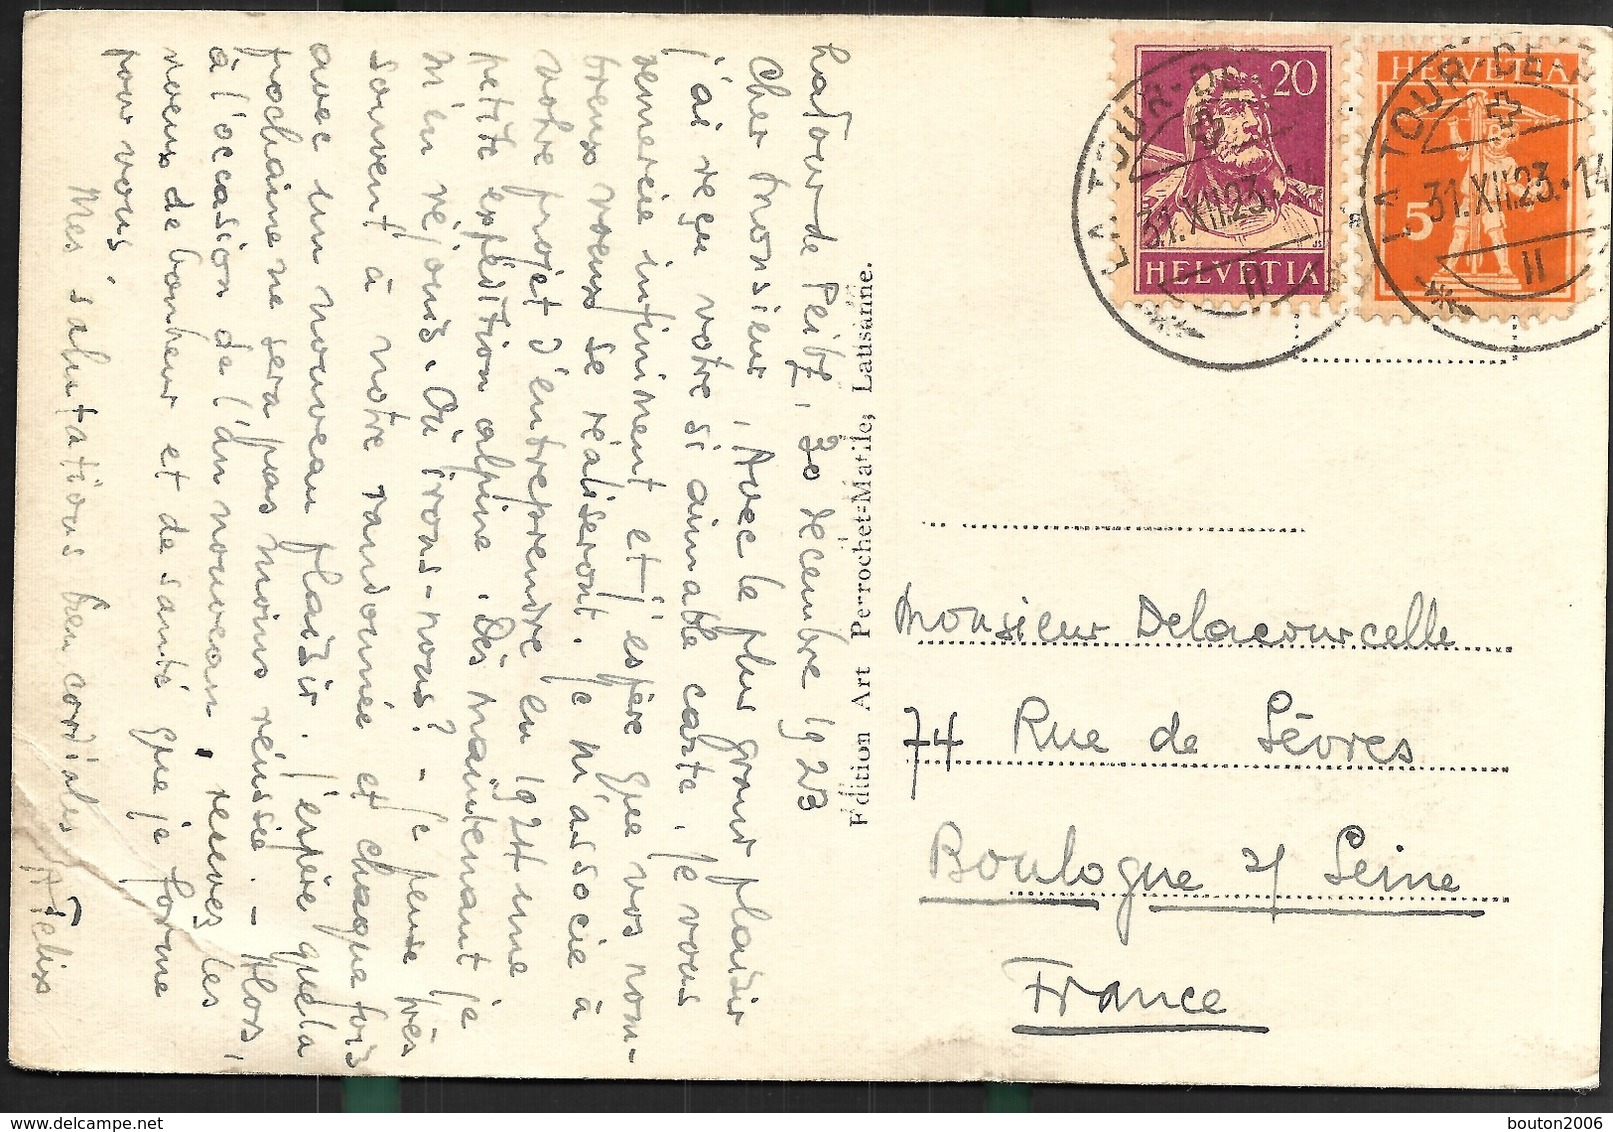 La Tour de Peilz, 30 décembre 1923
Cher Monsieur, Avec le plus grand plaisir
j'ai reçu votre si aimable carte. Je vous
remercie infiniment et j'espère que vos nom-
breux voeux se réaliseront. Je m'associe à
votre projet d'entreprendre en 1924 une
petite expédition alpine. Dès maintenant je
m'en réjouis. Où irons-nous? - Je pense très
souvent à notre randonnée et chaque fois
avec un nouveau plaisir. J'espère que la
prochaine ne sera pas moins réussie. - Alors,
à l'occasion de l'an nouveau, recevez les
voeux de bonheur et de santé que je forme
pour vous.
Mes salutations bien cordiales A Felix
Edition Art Perrochet-Matile, Lausanne.
20
HELVETIA
HELVETIA
5
LA TOUR-DE-
31.XII.23.
II
LA TOUR-DE-
31.XII.23.14
II
Monsieur Delacourcelle
74 Rue de Sèvres
Boulogne s/ Seine
France
bouton2006